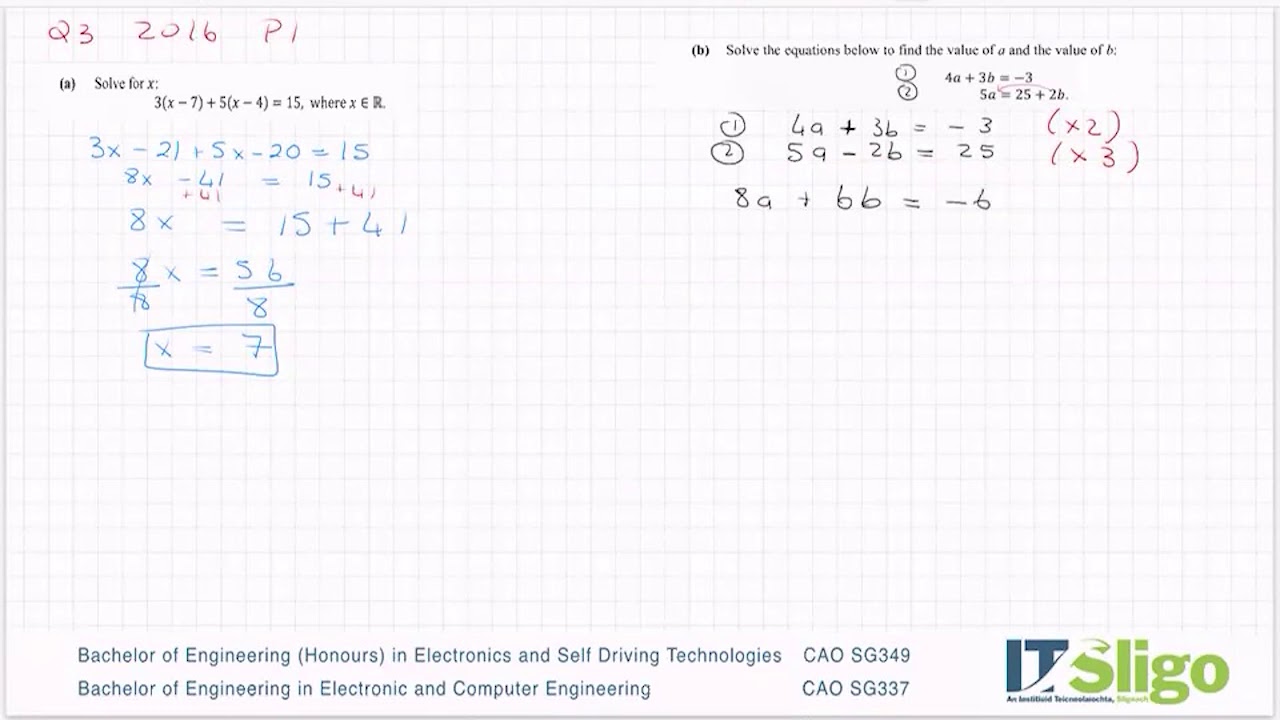 Q3 2016 P1
(a) Solve for x:
3(x − 7) + 5(x − 4) = 15, where x ∈ ℝ.
3x − 21 + 5x − 20 = 15
8x − 41 = 15
+41 +41
8x = 15 + 41
8x = 56
8 8
x = 7
(b) Solve the equations below to find the value of a and the value of b:
① 4a + 3b = −3
② 5a = 25 + 2b.
① 4a + 3b = − 3 (×2)
② 5a − 2b = 25 (×3)
8a + 6b = −6
Bachelor of Engineering (Honours) in Electronics and Self Driving Technologies CAO SG349
Bachelor of Engineering in Electronic and Computer Engineering CAO SG337
IT Sligo
An Institiúid Teicneolaíochta, Sligeach